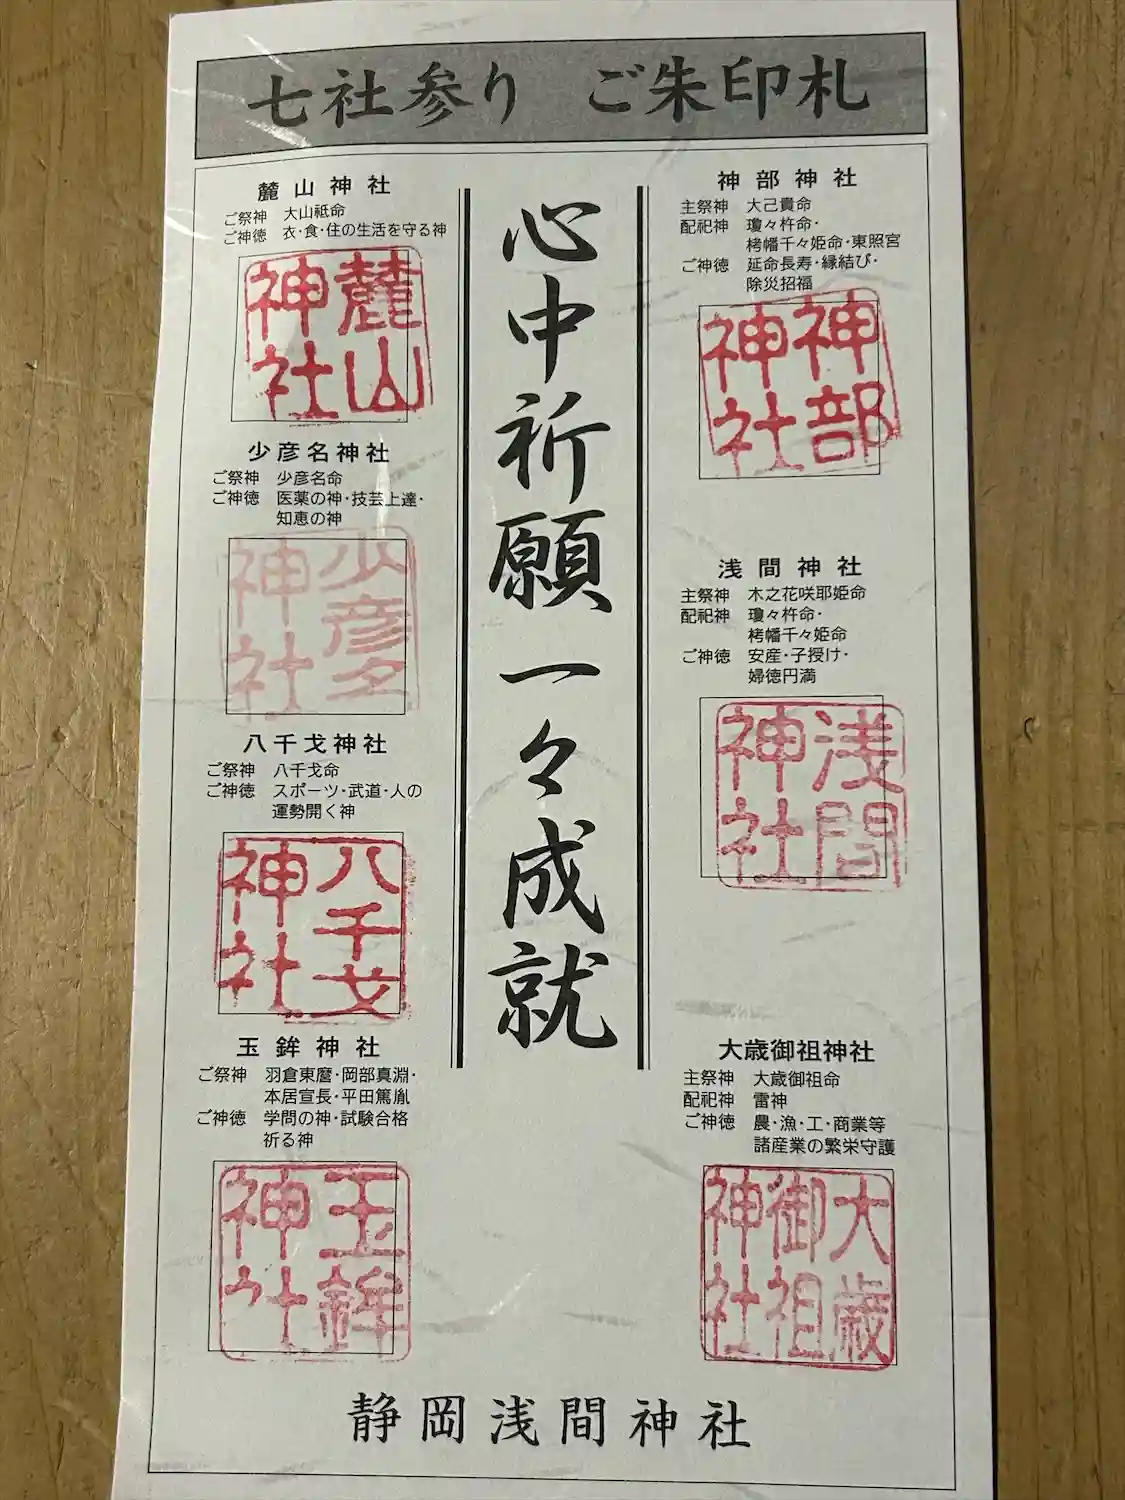 七社参り ご朱印札
神部神社
主祭神 大己貴命
配祀神 瓊々杵命・
栲幡千々姫命・東照宮
ご神徳 延命長寿・縁結び・
除災招福
神部
神社
浅間神社
主祭神 木之花咲耶姫命
配祀神 瓊々杵命・
栲幡千々姫命
ご神徳 安産・子授け・
婦徳円満
浅間
神社
大歳御祖神社
主祭神 大歳御祖命
配祀神 雷神
ご神徳 農・漁・工・商業等
諸産業の繁栄守護
大歳
御祖
神社
心中祈願一々成就
麓山神社
ご祭神 大山祗命
ご神徳 衣・食・住の生活を守る神
麓山
神社
少彦名神社
ご祭神 少彦名命
ご神徳 医薬の神・技芸上達・
知恵の神
少彦名
神社
八千戈神社
ご祭神 八千戈命
ご神徳 スポーツ・武道・人の
運勢開く神
八千戈
神社
玉鉾神社
ご祭神 羽倉東麿・岡部真淵・
本居宣長・平田篤胤
ご神徳 学問の神・試験合格
祈る神
玉鉾
神社
静岡浅間神社